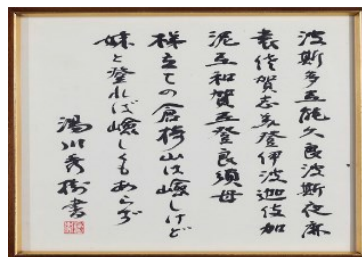 波斯多弖能久良波斯夜麻
袁佐賀志美登伊波迦伎加
泥弖和賀弖登良須母
梯立ての倉椅山は嶮しけど
妹と登れば嶮しくもあらず
湯川秀樹書